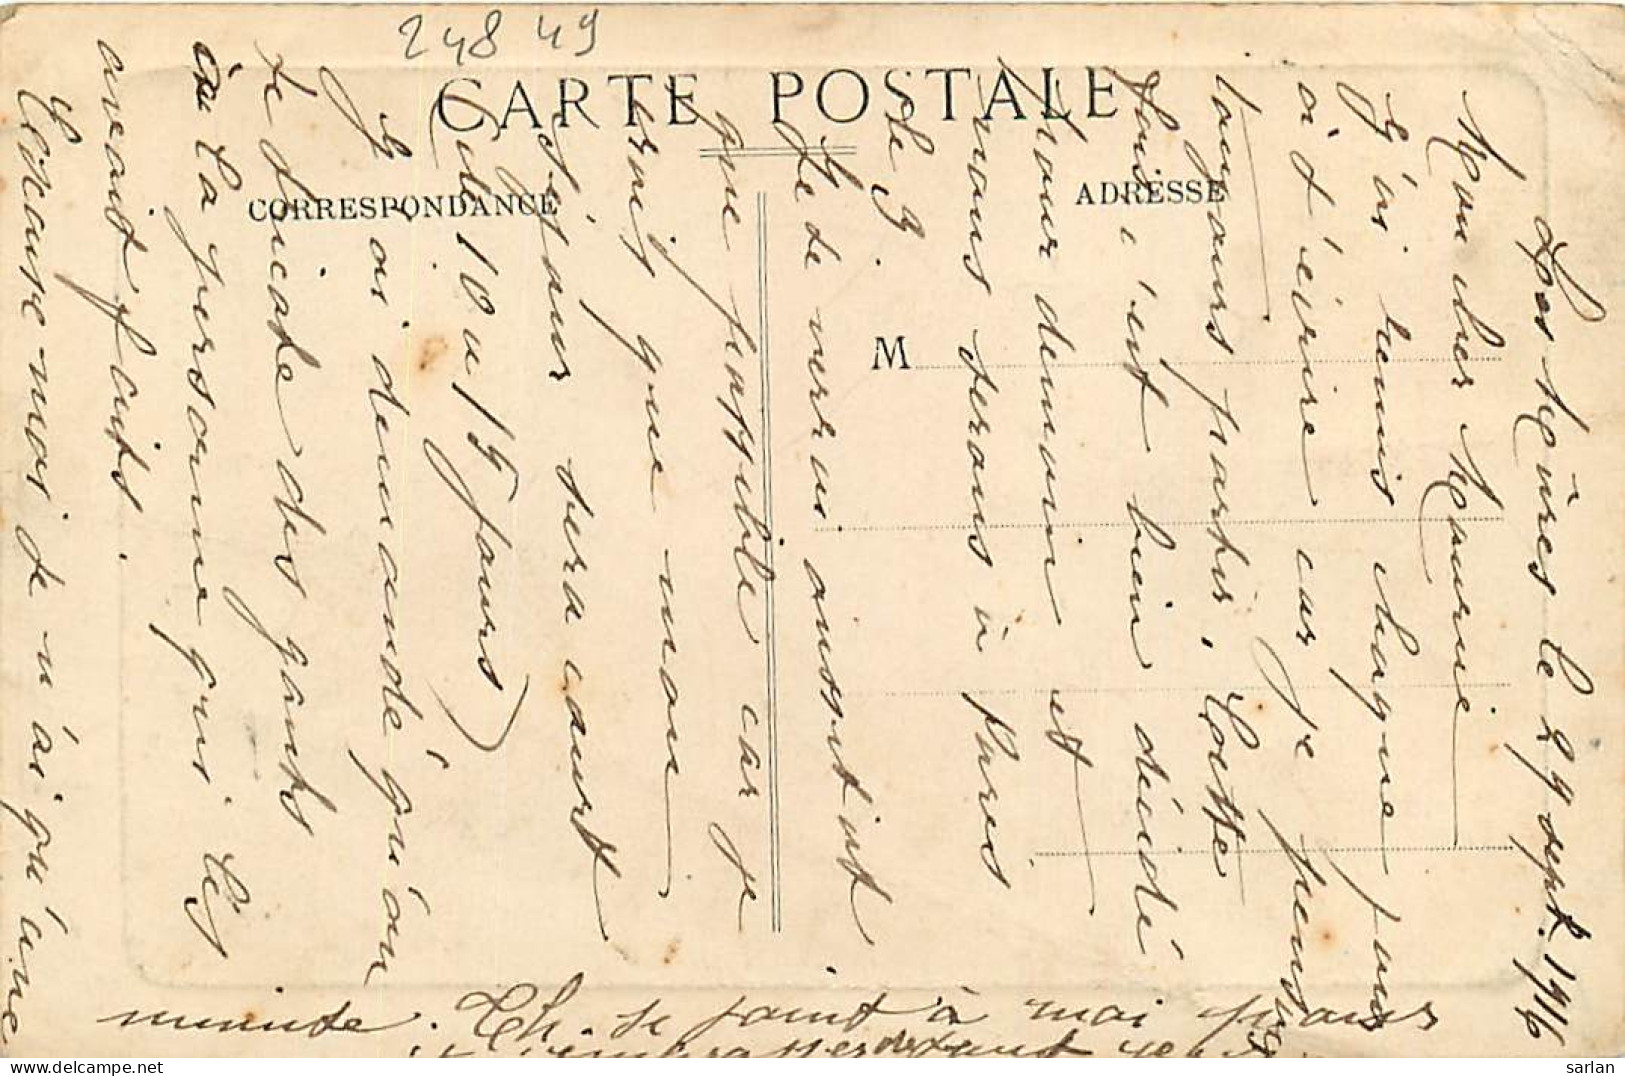 248 49
CARTE POSTALE
CORRESPONDANCE
ADRESSE
M
Les Mûres le 29 sept. 1916
Mon cher Maurice
J'ai remis chaque jour
à t'écrire car je pensais
toujours partir. Cette
fois c'est bien décidé
pour demain et
nous serons à Paris
le 3.
Je te verrai aussitôt
que possible car je
crains que mon
séjour sera court
(Que 10 a 15 jours)
J'ai demandé qu'on
te fricote des gants
à la personne qui les
avait faits.
Excuse-moi je n'ai qu'une
minute. Th. se joint à moi pour
t'embrasser